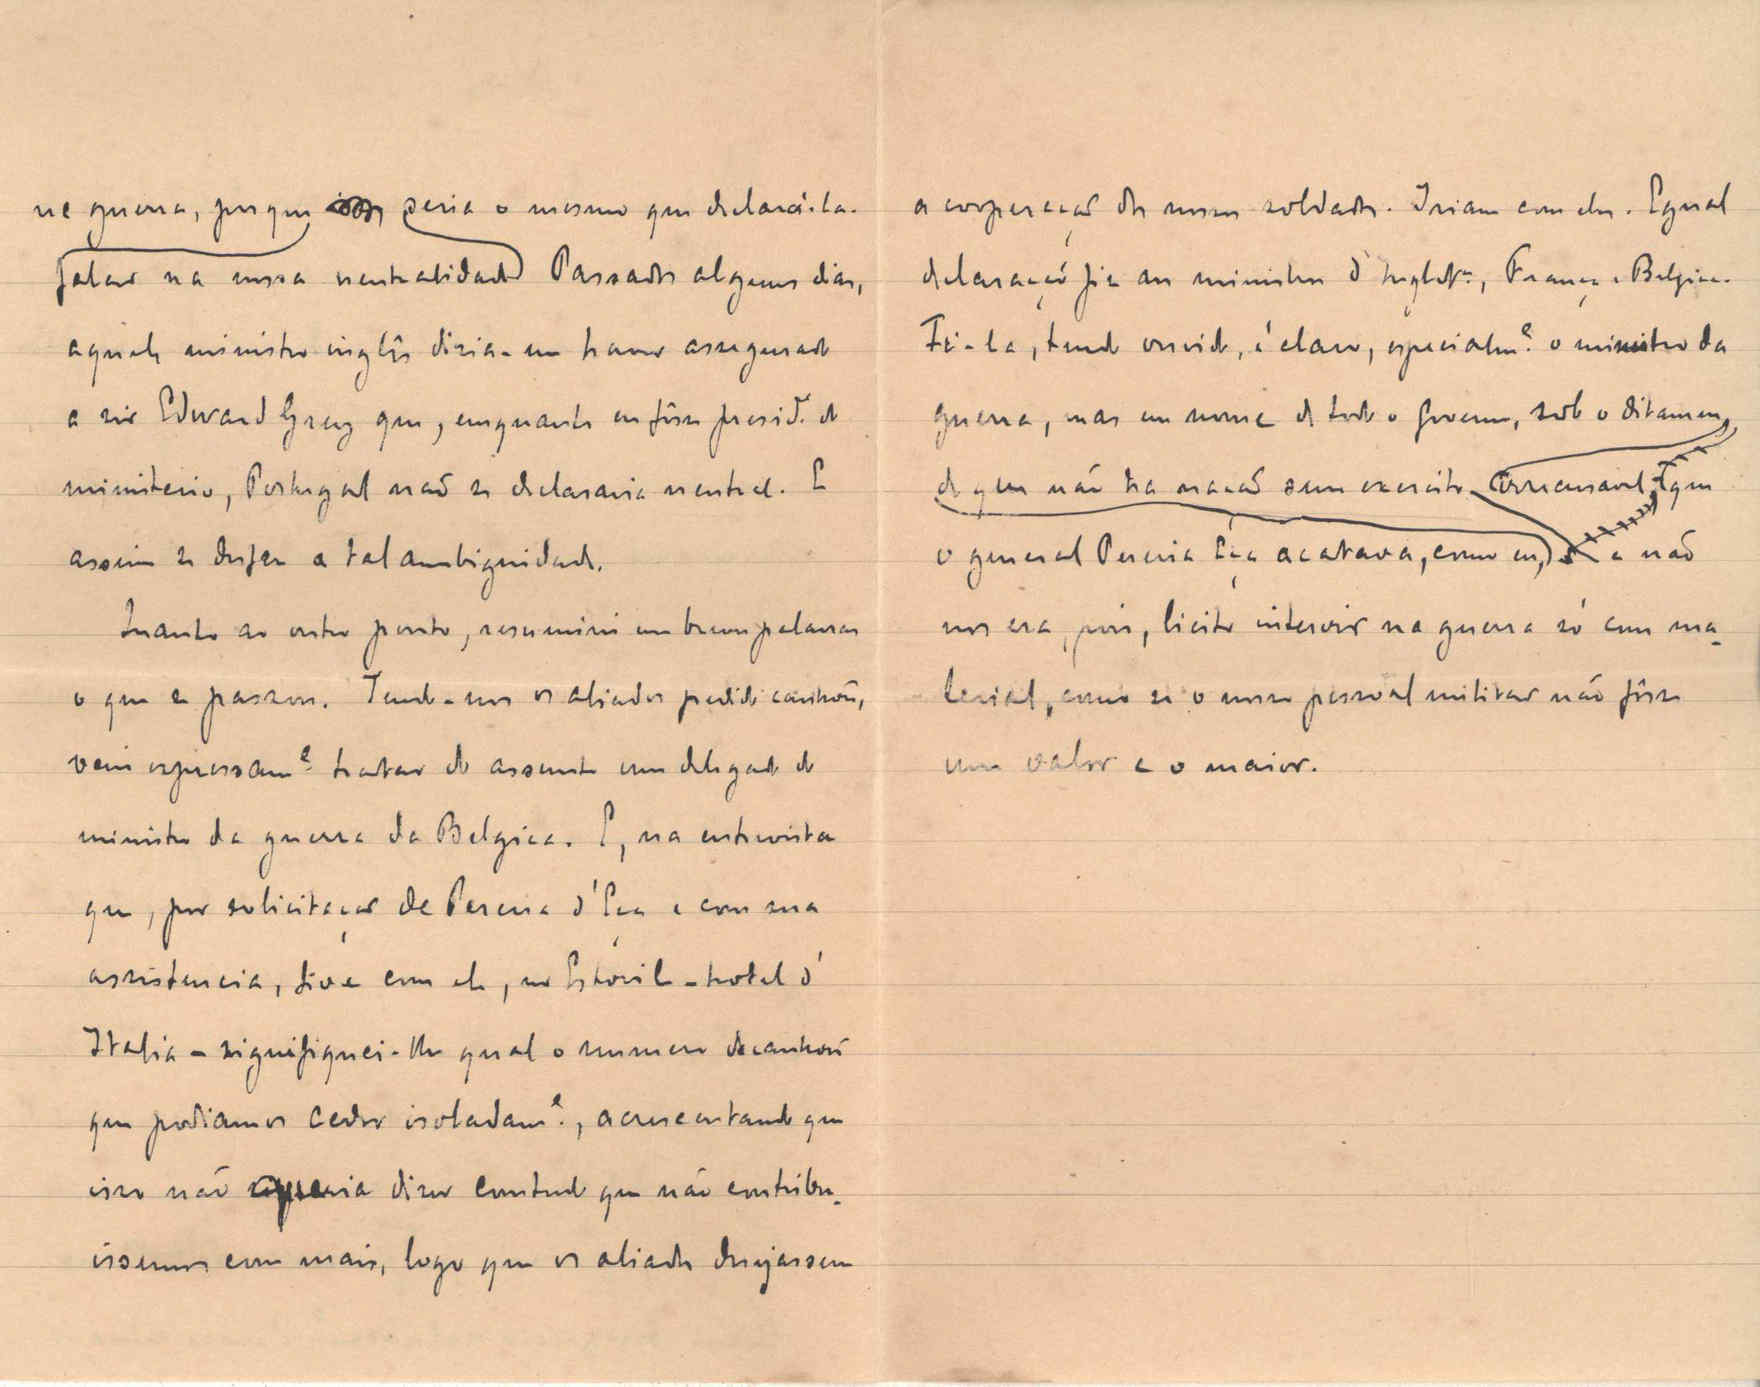 na guerra, porque seria o mesmo que declará-la.
falar na nossa neutralidade Passados alguns dias,
aquele ministro inglês dizia-me haver assegurado
a sir Edward Grey que, emquanto eu fôsse presid.te do
ministerio, Portugal não se declararia neutral. E
assim se desfez a tal ambiguidade.
Quanto ao outro ponto, resumirei em breves palavras
o que se passou. Tendo-nos os aliados pedido canhões,
veiu expressam.e tratar do assunto um delegado do
ministro da guerra da Belgica. E, na entrevista
que, por solicitação de Pereira d'Eça e com sua
assistencia, tive com ele, no Estoril - hotel d'
Italia - signifiquei-lhe qual o numero de canhões
que podiamos ceder isoladam.e, acrescentando que
isso não queria dizer comtudo que não contribu-
issemos com mais, logo que os aliados desejassem
a cooperação dos nossos soldados. Iriam com eles. Egual
declaração fiz aos ministros d'Inglat.ra, França e Belgica.
Fi-la, tendo ouvido, é claro, especialm.e o ministro da
guerra, mas em nome de todo o governo, sob o ditamen,
de que não ha nação sem exercito irrecusavel, que
o general Pereira Eça acatava, como eu, e não
nos era, pois, licito intervir na guerra só com ma-
terial, como se o nosso pessoal militar não fôsse
um valor e o maior.